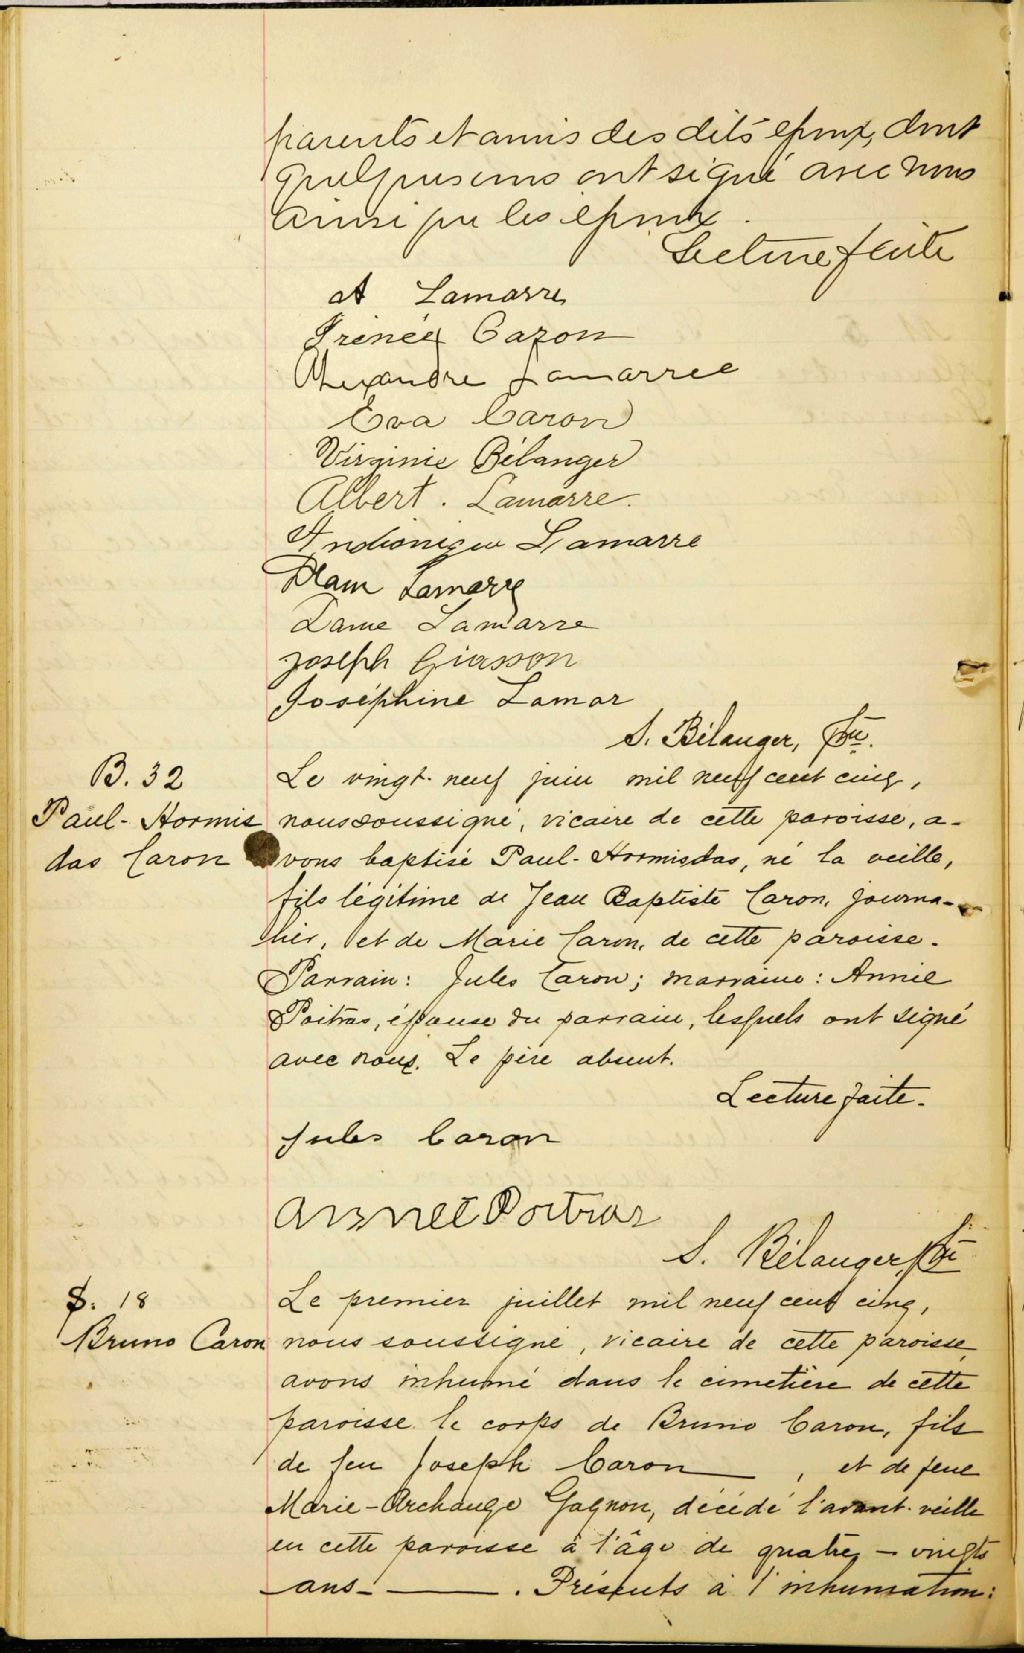 parents et amis des dits époux, dont
quelques uns ont signé avec nous
ainsi que les époux.
Lecture faite
A Lamarre
Irénée Caron
Alexandre Lamarree
Eva Caron
Virginie Bélanger
Albert. Lamarre.
Lamarre
Lamarre
Dame Lamarre
Joseph Giasson
Joséphine Lamar
S. Bélanger, Ptre.
B. 32
Paul-Hormis
das Caron
Le vingt-neuf juin mil neuf cent cinq,
nous soussigné, vicaire de cette paroisse, a-
vons baptisé Paul-Hormisdas, né la veille,
fils légitime de Jean Baptiste Caron, journa-
lier, et de Marie Caron, de cette paroisse.
Parrain: Jules Caron; marraine: Annie
Poitras, épouse du parrain, lesquels ont signé
avec nous. Le père absent.
Lecture faite.
Jules Caron
Poitras
S. Bélanger, Ptre
S. 18
Bruno Caron
Le premier juillet mil neuf cent cinq,
nous soussigné, vicaire de cette paroisse
avons inhumé dans le cimetière de cette
paroisse le corps de Bruno Caron, fils
de feu Joseph Caron , et de feue
Marie-Archange Gagnon, décédé l'avant-veille
en cette paroisse à l'âge de quatre-vingts
ans. Présents à l'inhumation: